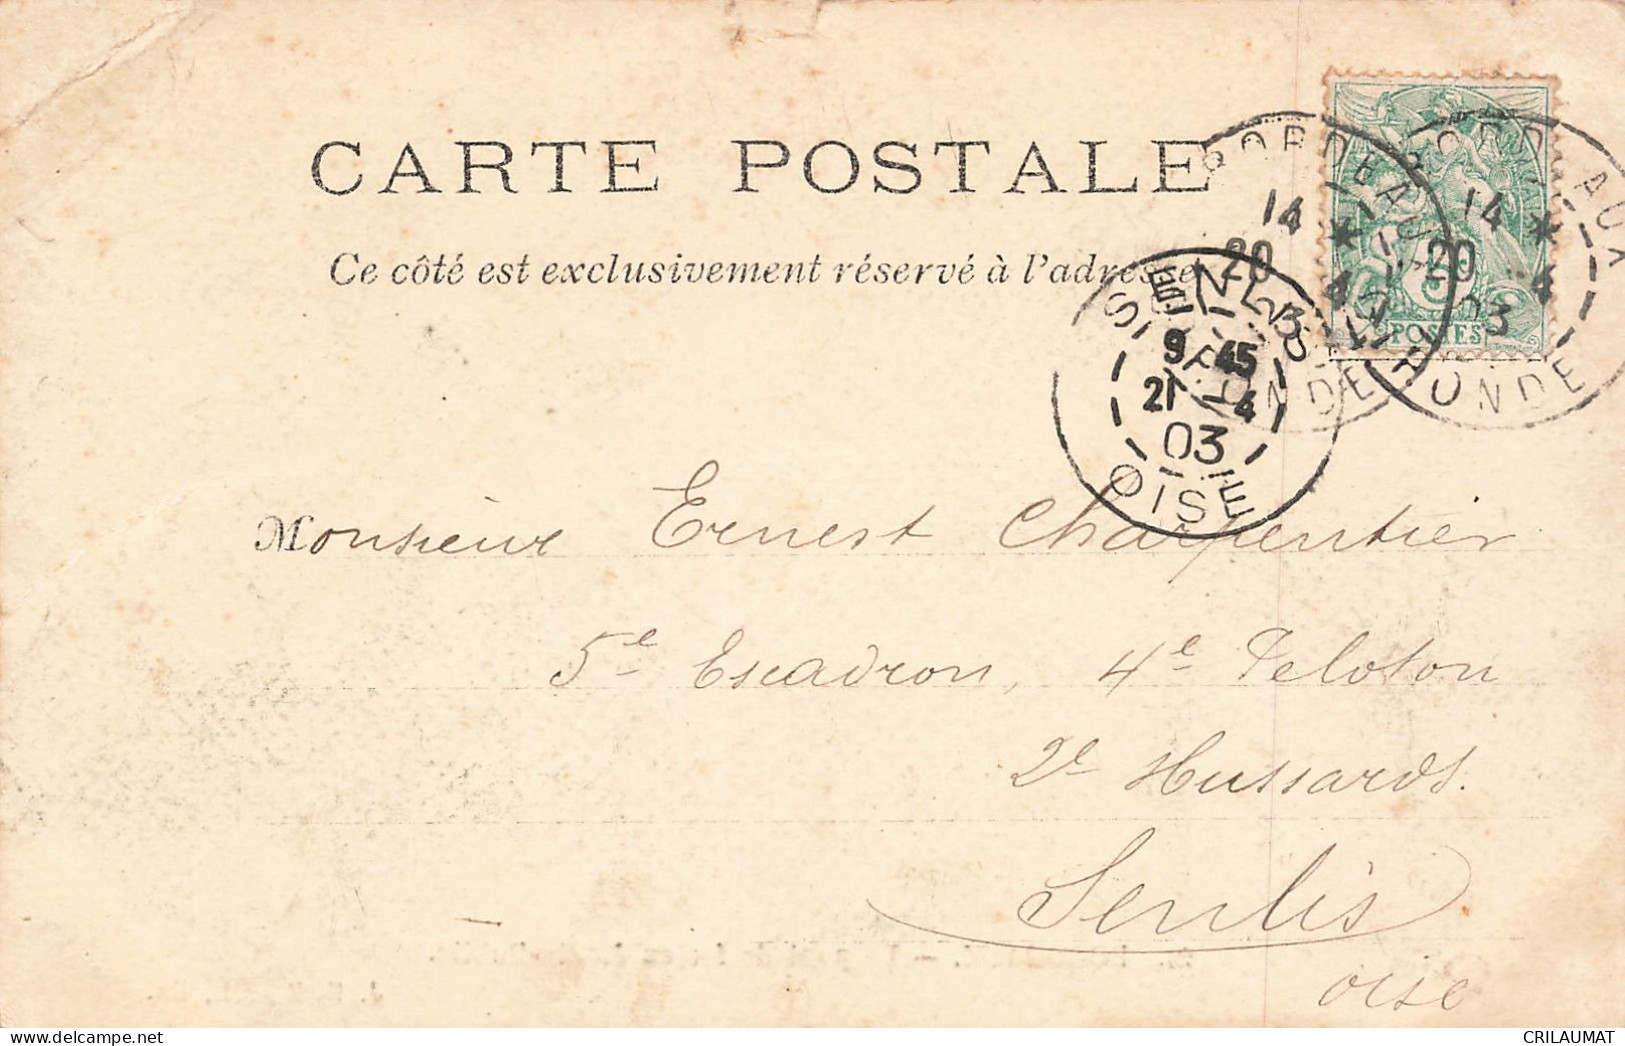 CARTE POSTALE
Ce côté est exclusivement réservé à l'adresse
BORDEAUX
14 * 
20 4
03
GIRONDE
BORDEAUX
14 *
20 4
03
GIRONDE
5
POSTES
SENLIS
9 45
21 4
03
OISE
Monsieur Ernest Charpentier
5e Escadron, 4e Peloton
2e Hussards.
Senlis
oise
CRILAUMAT